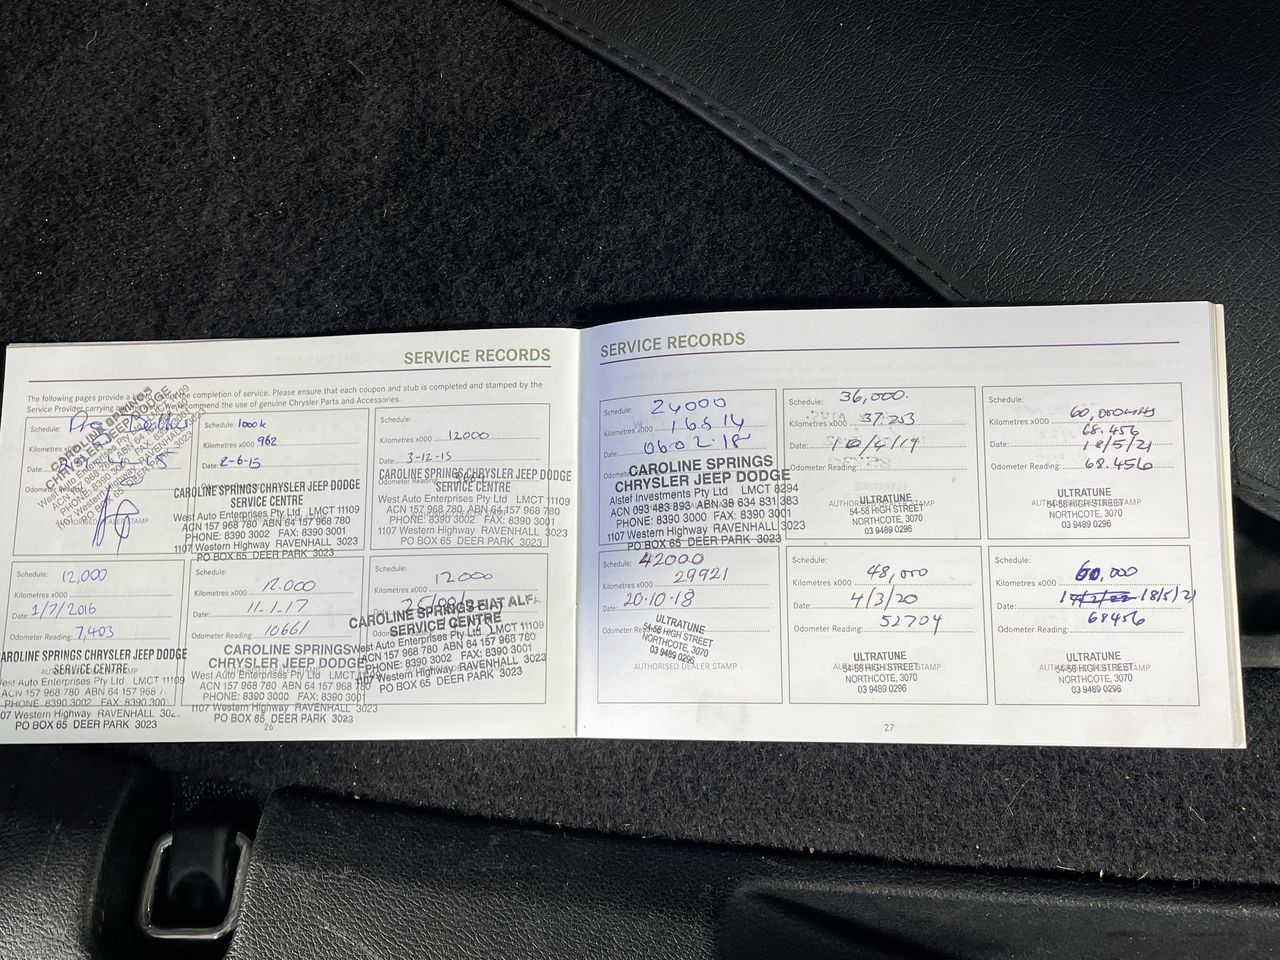 SERVICE RECORDS
The following pages provide a completion of service. Please ensure that each coupon and stub is completed and stamped by the
Service Provider carrying recommend the use of genuine Chrysler Parts and Accessories.
Schedule:
CAROLINE SPRINGS
CHRYSLER JEEP DODGE
Date:
Schedule: 1000k
Kilometres x000 962
Date: 2-6-15
CAROLINE SPRINGS CHRYSLER JEEP DODGE
SERVICE CENTRE
West Auto Enterprises Pty Ltd LMCT 11109
ACN 157 968 780 ABN 64 157 968 780
PHONE: 8390 3002 FAX: 8390 3001
1107 Western Highway RAVENHALL 3023
PO BOX 65 DEER PARK 3023
Schedule:
Kilometres x000 12000
Date: 3-12-15
CAROLINE SPRINGS CHRYSLER JEEP DODGE
SERVICE CENTRE
West Auto Enterprises Pty Ltd LMCT 11109
ACN 157 968 780 ABN 64 157 968 780
PHONE: 8390 3002 FAX: 8390 3001
1107 Western Highway RAVENHALL 3023
PO BOX 65 DEER PARK 3023
Schedule: 12,000
Kilometres x000
Date: 1/7/2016
Odometer Reading: 7,403
CAROLINE SPRINGS CHRYSLER JEEP DODGE
SERVICE CENTRE
West Auto Enterprises Pty Ltd LMCT 11109
ACN 157 968 780 ABN 64 157 968
PHONE: 8390 3002 FAX: 8390 300
Western Highway RAVENHALL
PO BOX 65 DEER PARK 3023
Schedule:
Kilometres x000 12.000
Date: 11-1-17
Odometer Reading: 10661
CAROLINE SPRINGS
CHRYSLER JEEP DODGE
West Auto Enterprises Pty Ltd
ACN 157 968 780 ABN 64 157 968 780
PHONE: 8390 3000 FAX: 8390 3001
1107 Western Highway RAVENHALL 3023
PO BOX 65 DEER PARK 3023
Schedule:
12000
CAROLINE SPRINGS FIAT ALFA
SERVICE CENTRE
West Auto Enterprises Pty Ltd
ACN 157 968 780 ABN 64 157 968 780
PHONE: 8390 3002 FAX: 8390 3001
1107 Western Highway RAVENHALL 3023
PO BOX 65 DEER PARK 3023
26
SERVICE RECORDS
Schedule: 24000
Kilometres x000 16514
Date: 06.02.18
CAROLINE SPRINGS
CHRYSLER JEEP DODGE
Alstef Investments Pty Ltd LMCT 8294
ACN 093 483 893 ABN 38 634 831 383
PHONE: 8390 3000 FAX: 8390 3001
1107 Western Highway RAVENHALL 3023
PO BOX 65 DEER PARK 3023
Schedule: 36,000.
Kilometres x000 37253
Date:
Odometer Reading:
AUTHORISED DEALER STAMP
ULTRATUNE
54-58 HIGH STREET
NORTHCOTE, 3070
03 9489 0296
Schedule: 60,000
Kilometres x000 68.456
Date: 18/5/21
Odometer Reading: 68.456
AUTHORISED DEALER STAMP
ULTRATUNE
54-58 HIGH STREET
NORTHCOTE, 3070
03 9489 0296
Schedule: 42000
Kilometres x000 29921
Date: 20.10.18
Odometer Reading:
ULTRATUNE
54-58 HIGH STREET
NORTHCOTE, 3070
03 9489 0296
AUTHORISED DEALER STAMP
Schedule: 48,000
Kilometres x000
Date: 4/3/20
Odometer Reading: 52704
AUTHORISED DEALER STAMP
ULTRATUNE
54-58 HIGH STREET
NORTHCOTE, 3070
03 9489 0296
Schedule:
Kilometres x000 60,000
Date: 18/5/21
Odometer Reading: 68456
AUTHORISED DEALER STAMP
ULTRATUNE
54-58 HIGH STREET
NORTHCOTE, 3070
03 9489 0296
27